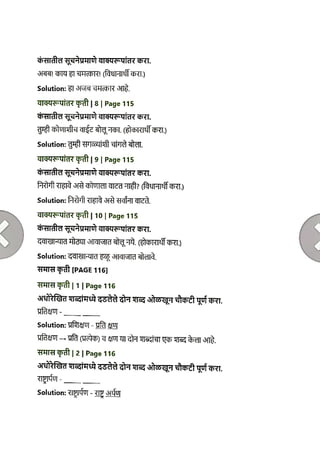 कंसातील सूचनेप्रमाणे वाक्यरूपांतर करा.
अबब! काय हा चमत्कार! (विधानार्थी करा.)
Solution: हा अजब चमत्कार आहे.
वाक्यरूपांतर कृती | 8 | Page 115
कंसातील सूचनेप्रमाणे वाक्यरूपांतर करा.
तुम्ही कोणाशीच वाईट बोलू नका. (होकारार्थी करा.)
Solution: तुम्ही सगळ्यांशी चांगले बोला.
वाक्यरूपांतर कृती | 9 | Page 115
कंसातील सूचनेप्रमाणे वाक्यरूपांतर करा.
निरोगी राहावे असे कोणाला वाटत नाही? (विधानार्थी करा.)
Solution: निरोगी राहावे असे सर्वांना वाटते.
वाक्यरूपांतर कृती | 10 | Page 115
कंसातील सूचनेप्रमाणे वाक्यरूपांतर करा.
दवाखान्यात मोठ्या आवाजात बोलू नये. (होकारार्थी करा.)
Solution: दवाखान्यात हळू आवाजात बोलावे.
समास कृती [PAGE 116]
समास कृती | 1 | Page 116
अधोरेखित शब्दांमध्ये दडलेले दोन शब्द ओळखून चौकटी पूर्ण करा.
प्रतिक्षण - ______ ______
Solution: प्रतिक्षण - प्रति क्षण
प्रतिक्षण → प्रति (प्रत्येक) व क्षण या दोन शब्दांचा एक शब्द केला आहे.
समास कृती | 2 | Page 116
अधोरेखित शब्दांमध्ये दडलेले दोन शब्द ओळखून चौकटी पूर्ण करा.
राष्ट्रार्पण - ______ ______
Solution: राष्ट्रार्पण - राष्ट्र अर्पण